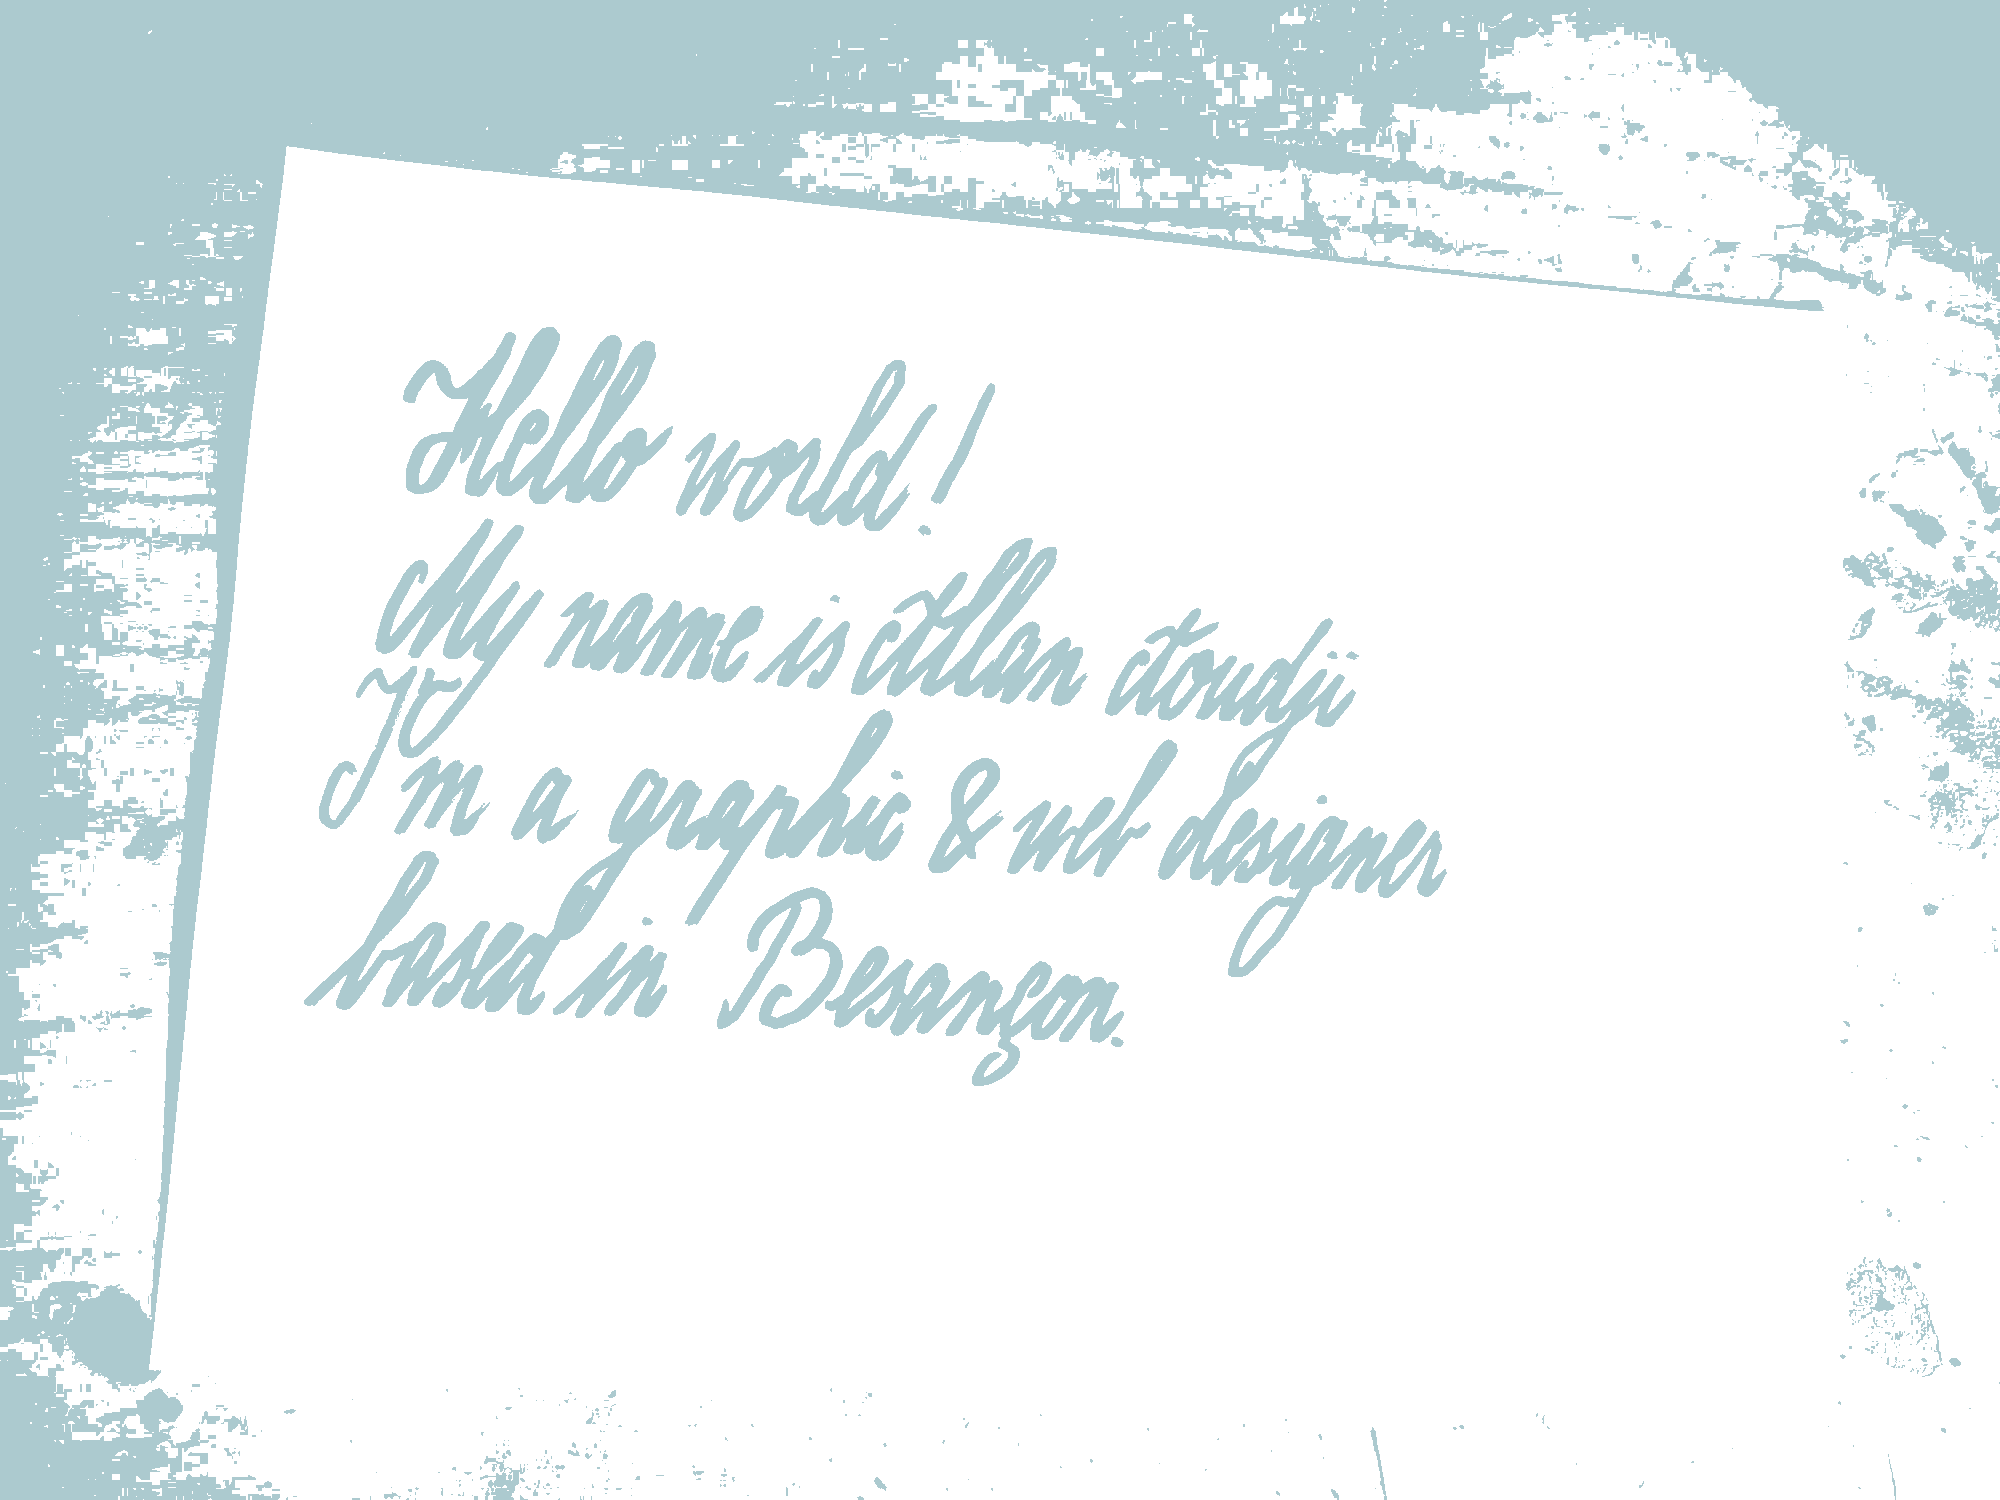 Hello world!
My name is Allan Aoudji
I'm a graphic & web designer
based in Besançon.